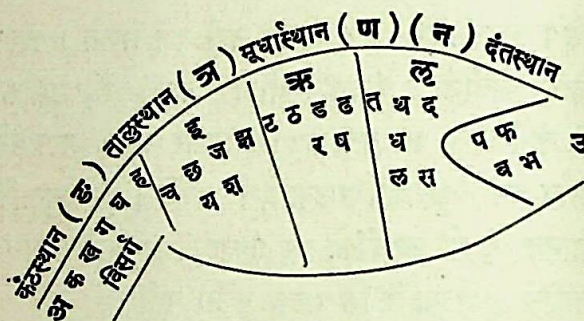 कंठस्थान (ङ) तालुस्थान (ञ) मूर्धास्थान (ण) (न) दंतस्थान
अ क ख ग घ ह
विसर्ग
इ
च छ ज झ
य श
ऋ
ट ठ ड ढ
र ष
ऌ
त थ द
ध
ल स
प फ
ब भ